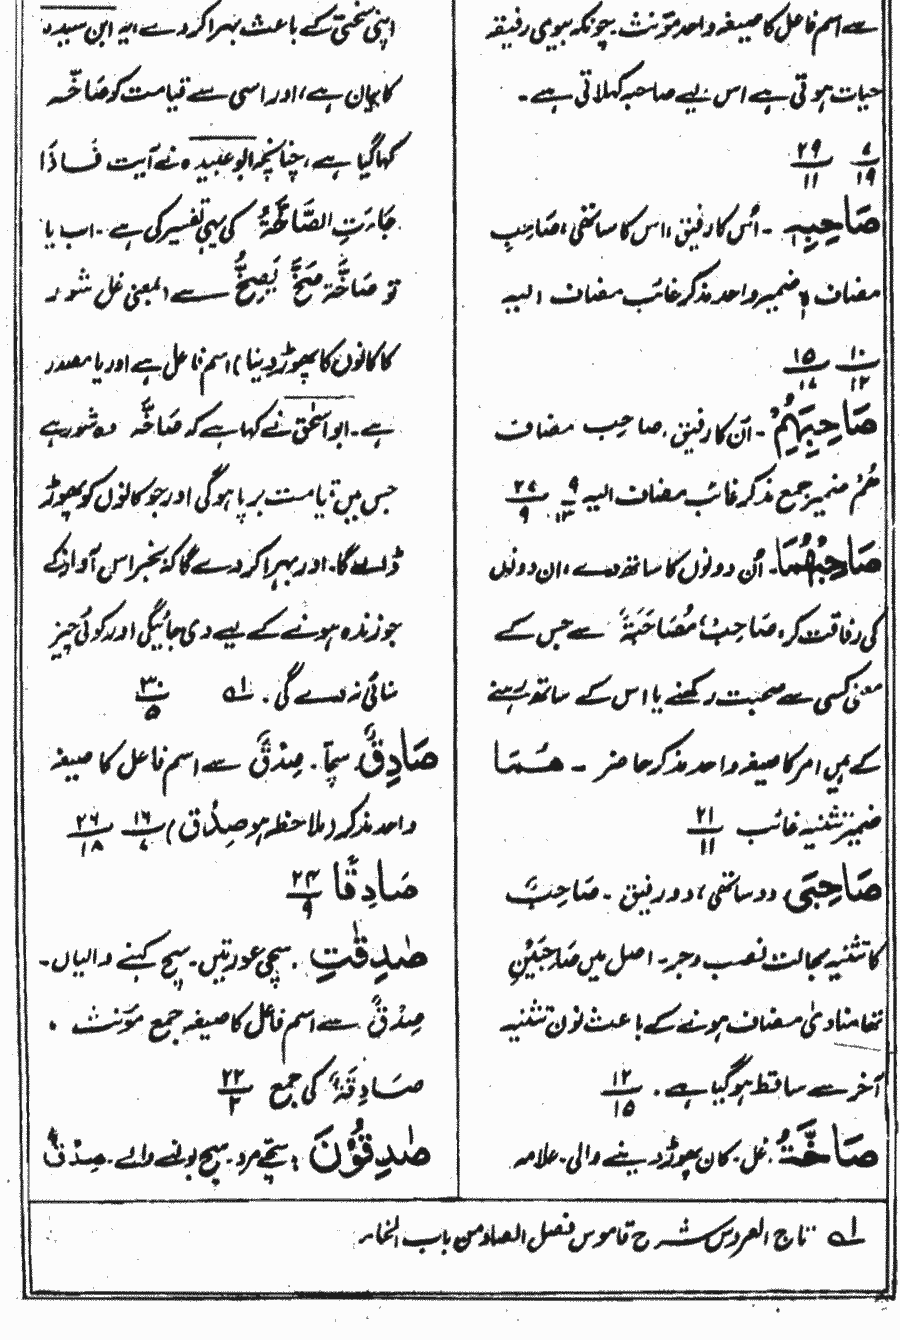 سے اسم فاعل کا صیغہ واحد مؤنث۔ چونکہ بیوی رفیقہ
حیات ہوتی ہے اس لیے صاحبہ کہلاتی ہے۔
۲۹/۱۱ ۷/۱۹
صَاحِبِہٖ ۔ اُس کا رفیق، اس کا ساتھی، صَاحِبِ
مضاف ہٖ ضمیر واحد مذکر غائب مضاف الیہ
۱۵/۱۷ ۱۰/۱۲
صَاحِبَهُمْ ۔ ان کا رفیق، صاحب مضاف
ھُمْ ضمیر جمع مذکر غائب مضاف الیہ ۹/۱۳ ۲۷/۹
صَاحِبْهُمَا ۔ اُن دونوں کا ساتھ دے، ان دونوں
کی رفاقت کر، صَاحِبْ، مُصَاحَبَۃٌ سے جس کے
معنی کسی سے صحبت رکھنے یا اس کے ساتھ رہنے
کے ہیں امر کا صیغہ واحد مذکر حاضر ۔ ھُمَا
ضمیر تثنیہ غائب ۲۱/۱۱
صَاحِبَیِ دو ساتھی، دو رفیق ۔ صَاحِبٌ
کا تثنیہ بحالت نصب و جر۔ اصل میں صَاحِبَیْنِ
تھا منادیٰ مضاف ہونے کے باعث نون تثنیہ
آخر سے ساقط ہوگیا ہے ۔ ۱۲/۱۵
صَاخَّةُ ۔ غل۔ کان پھوڑ دینے والی۔ علامہ
اپنی سختی کے باعث بہرا کر دے، یہ ابن سیدہ
کا بیان ہے، اور اسی سے قیامت کو صَاخَّہ
کہا گیا ہے، چنانچہ ابوعبیدہ نے آیت فَاِذَا
جَاءَتِ الصَّاخَّةُ کی یہی تفسیر کی ہے ۔ اب یا
تو صَاخَّۃ صَخَّ یَصِخُّ سے بمعنی غل شور
کا کانوں کا پھوڑ دینا) اسم فاعل ہے اور یا مصدر
ہے۔ ابو اسحٰق نے کہا ہے کہ صَاخَّہ وہ شور ہے
جس میں قیامت برپا ہوگی اور جو کانوں کو پھوڑ
ڈالے گا۔ اور بہرا کر دے گا کہ بجز اس آواز کے
جو زندہ ہونے کے لیے دی جائیگی اور کوئی چیز
سنائی نہ دے گی ۔ ۱ہ ۳۰/۵
صَادِقُ سچا ۔ صِدْقٌ سے اسم فاعل کا صیغہ
واحد مذکر (ملاحظہ ہو صِدْق) ۱۶/۷ ۲۶/۱۸
صَادِقًا ۲۴/۹
صٰدِقٰتِ ۔ سچی عورتیں۔ سچ کہنے والیاں۔
صِدْقٌ سے اسم فاعل کا صیغہ جمع مؤنث ۔
صَادِقَۃٌ کی جمع ۲۲/۲
صٰدِقُوْنَ ؛ سچّے مرد۔ سچ بولنے والے۔ صِدْقٌ
۱ہ تاج العروس شرح قاموس فصل الصاد من باب الخاء